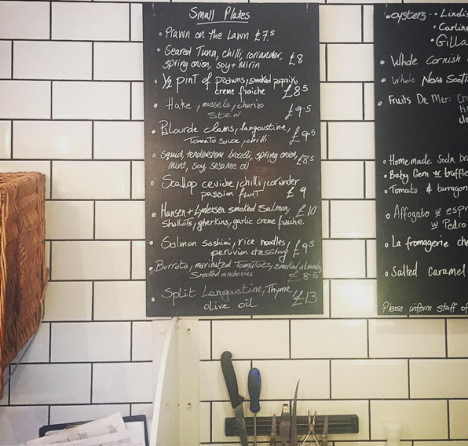 Small Plates
• Prawn on the Lawn £7.5
• Seared Tuna, chilli, coriander,
spring onion, soy + mirin £8
• ½ pint of Prawns, smoked paprika
creme fraiche £8.5
• Hake, mussels, chorizo
stew £9.5
• Palourde clams, langoustine,
Tomato sauce, chilli £9.5
• Squid, tenderstem broccoli, spring onion,
mint, soy, sesame oil £8.5
• Scallop ceviche, chilli, coriander
passion fruit £9
• Hansen + Lydersen smoked Salmon,
shallots, gherkins, garlic creme fraiche £10
• Salmon Sashimi, rice noodles,
peruvian dressing £9.5
• Burrata, marinated Tomatoes, smoked almonds,
Smoked anchovies £8.5
• Split Langoustine, Thyme,
olive oil £13
• oysters - Lindis
Carlin
Gilla
• Whole Cornish
• Whole Nova Scotia
• Fruits De Mer:
• Homemade Soda bre
• Baby Gem + truffle
• Tomato + tarragon
• Affogato w espr
w Pedro
• La fromagerie che
• Salted Caramel
Please inform staff of